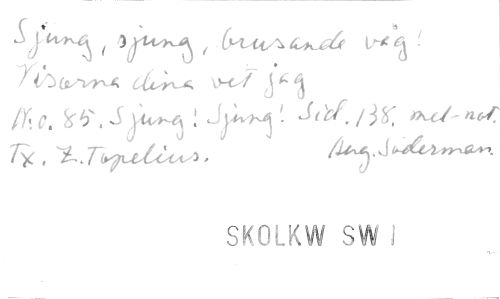 Sjung, sjung, brusande våg!
Visorna dina vet jag
N:o. 85. Sjung! Sjung! Sid. 138. mel-not.
Tx. Z. Topelius. Aug. Söderman.
SKOLKW SW I